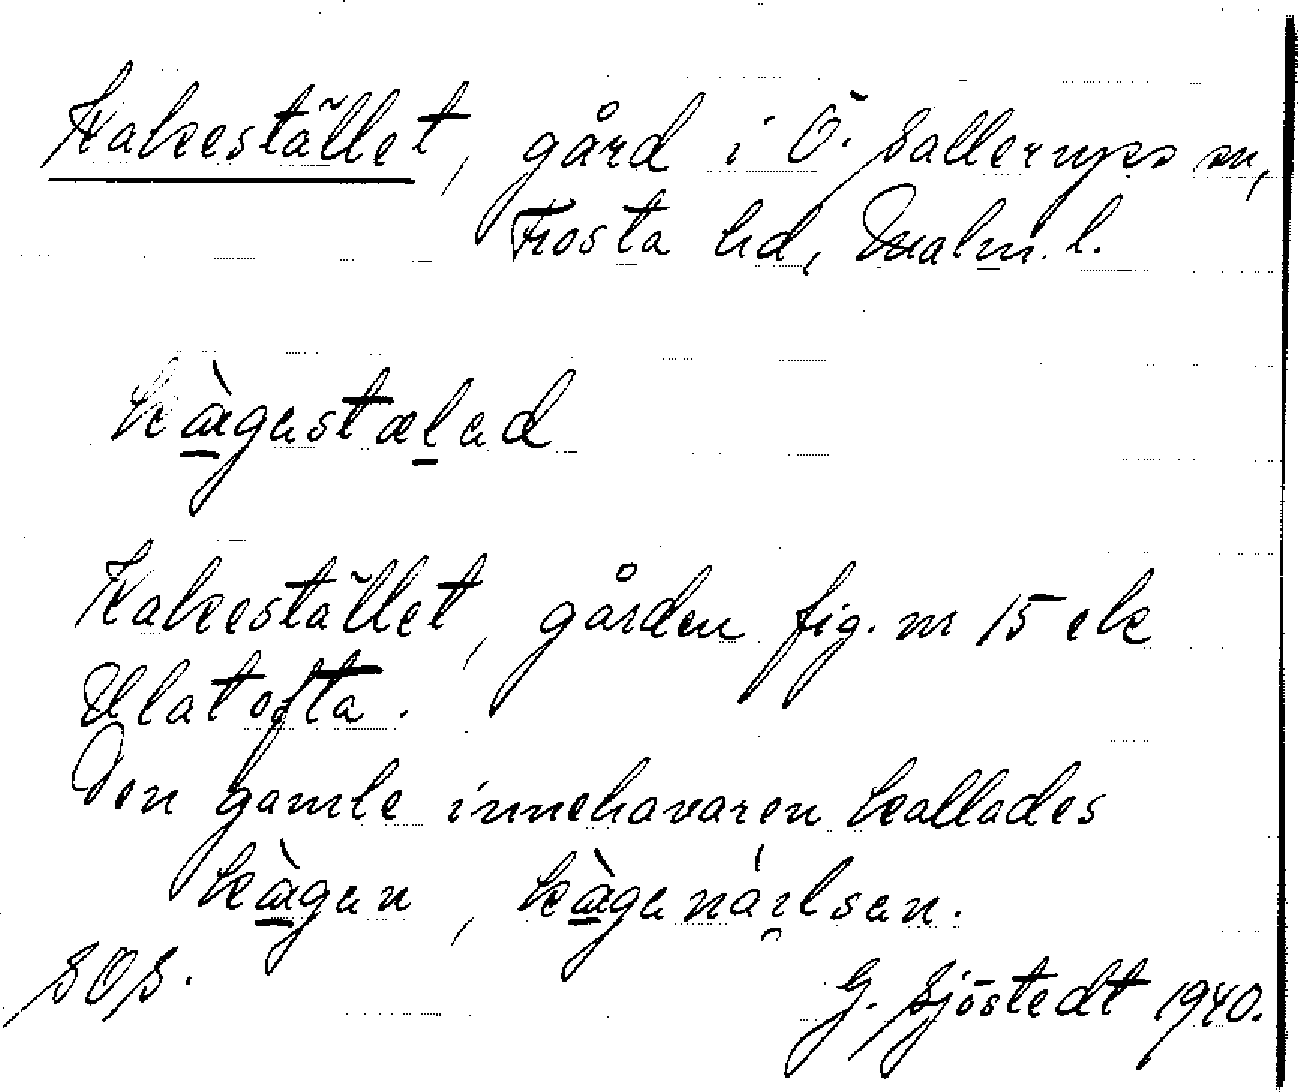 Kakestället, gård i Ö. Sallerups sn,
Frosta hd, Malm. l.
kæ̀gastælad
Kakestället, gården fig. nr 15 ek
Ulatofta.
Den gamle innehavaren kallades
kæ̀gan, kæ̀ganárlsan.
SOS.
G. Sjöstedt 1940.